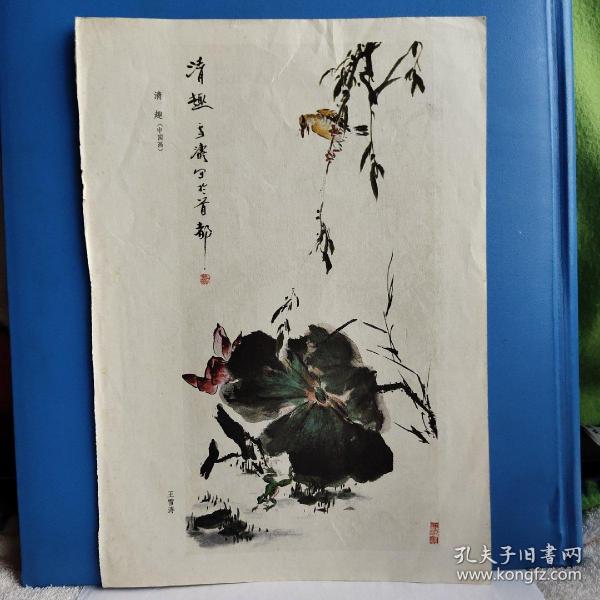 清趣 雪涛写于首都
清趣(中国画)
王雪涛
孔夫子旧书网
www.kongfz.com